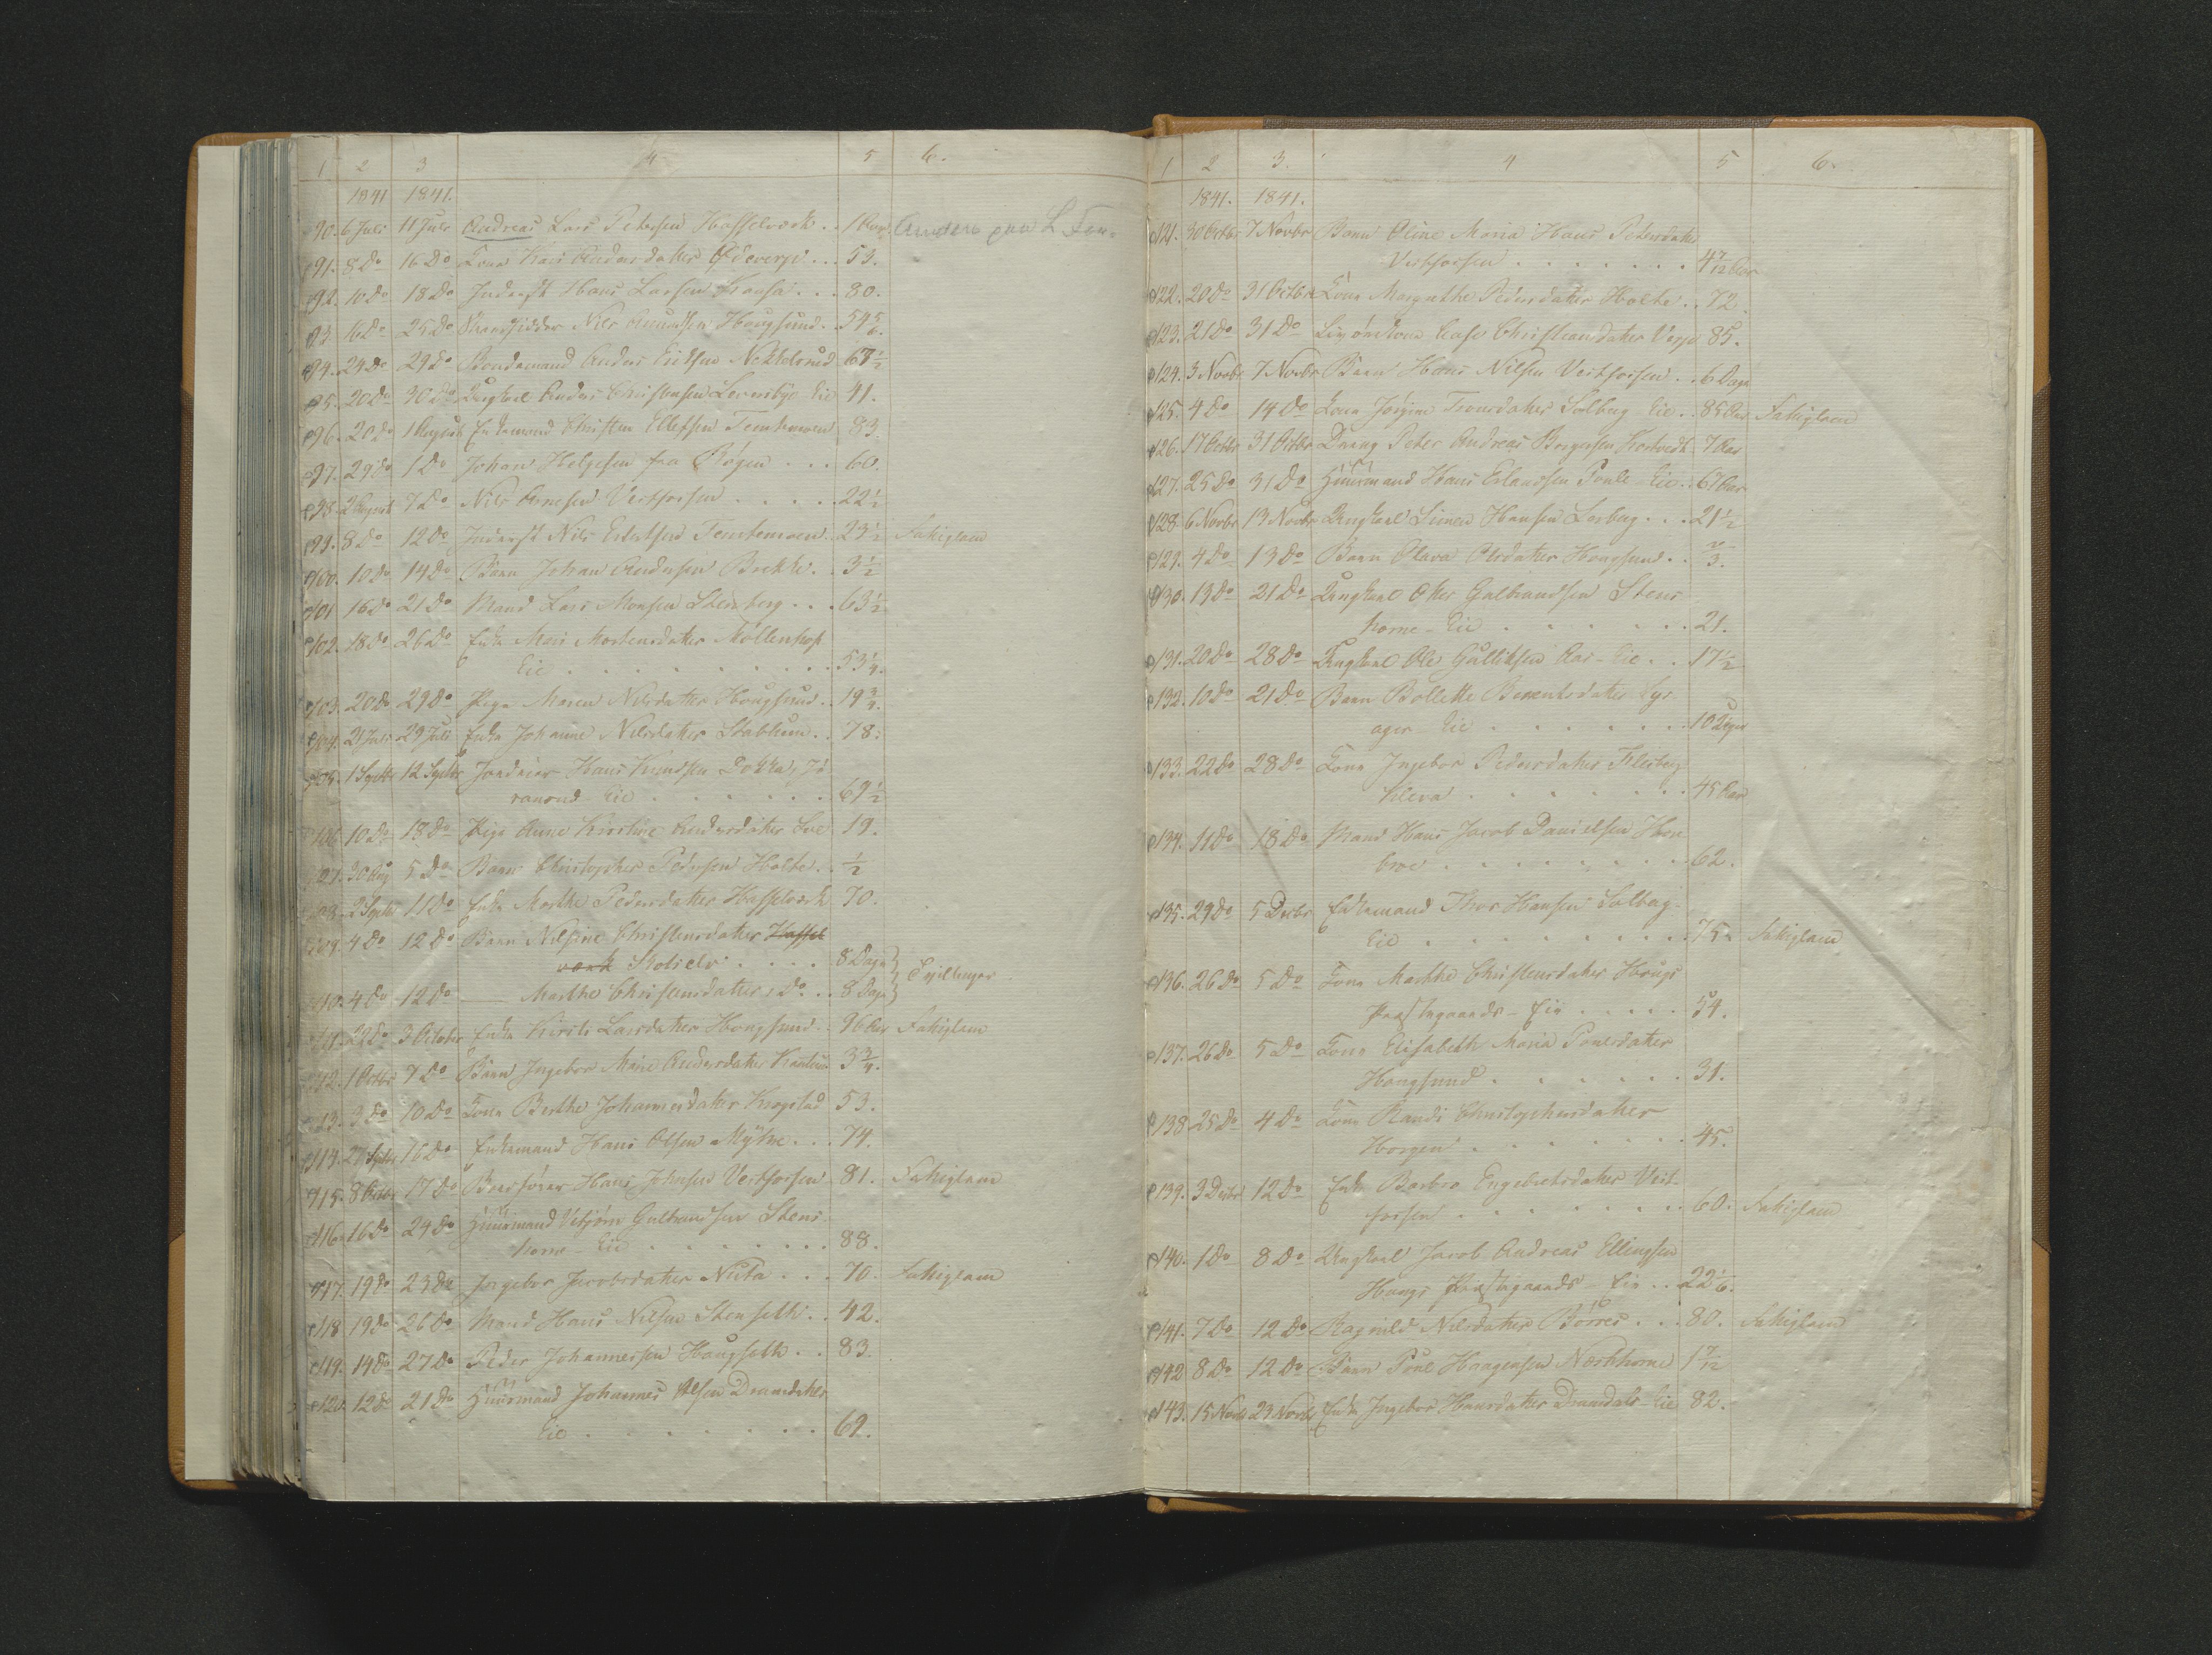 1 2 3 4 5 6.
1841 1841.
90. 6 Juli 11 Juli Andreas Lars Petersen Hasselværk . . 1
91. 8 Do 16 Do Kona Kari Andersdatter Ødeverje . . . 53.
92. 10 Do 18 Do Inderst Hans Larsen . . . 80.
93. 16 Do 25 Do Nils Amundsen Hougsund . 54 5/6.
94. 24 Do 29 Do Bondemand Anders Eriksen 67 1/2
95. 20 Do 30 Do Ungkarl Anders Christensen Eie 41.
96. 20 Do 1 August Enkemand Christen Ellefsen Temtemoen 83.
97. 29 Do 1 Do Johan Helgesen fra Røgen . . . 60.
98. 2 August 7 Do Nils Arnesen Vestfossen . . . . . 22 1/2
99. 8 Do 12 Do Inderst Nils Temtemoen. 23 1/2 Fattiglem
100. 10 Do 14 Do Barn Johan Andersen Brekke . . 3 1/2
101 16 Do 21 Do Mand Lars Monsen Stenberg . . . 63 1/2
102. 18 Do 26 Do Enke Mari Mortensdatter Møllenhof
Eie . . . . . . . . . . 53 1/4.
103. 20 Do 29 Do Pige Maren Nilsdatter Hougsund . . 19 3/4.
104. 21 Juli 29 Juli Enke Johanne Nilsdatter Stabhum . . 78.
105. 1 Septbr 12 Septbr Hans Knudsen Dokka,
Eie . . . . . . . 69 1/2
106. 10 Do 18 Do Pige Anne Kirstine Andersdatter Loe 19.
107. 30 Aug 5 Do Barn Christopher Pedersen Holte . . 1/2
108. 2 Septbr 11 Do Enke Marthe Pedersdatter Hasselværk 70.
109. 4 Do 12 Do Barn Nilsine Christensdatter Hassel
værk . . . . 8 Dage
110. 4 Do 12 Do Marthe Christensdatter, Do . . 8 Dage Tvillinger
111. 22 Do 3 October Enke Kirsti Larsdatter Hougsund . . 96 Aar Fattiglem
112. 1 Octbr 7 Do Barn Ingebor Marie Andersdatter 3 3/4.
113. 3 Do 10 Do Kona Berthe Johannesdatter Krogstad 53.
114. 27 Septbr 16 Do Enkemand Hans Olsen Myhre . . . 74.
115. 8 Octbr 17 Do Hans Johnsen Vestfossen 81. Fattiglem
116. 16 Do 24 Do Huusmand Gulbrandsen Stens
horne - Eie . . . . . . . . 88.
117. 19 Do 23 Do Ingebor Jacobsdatter . . . 70. Fattiglem
118 19 Do 26 Do Mand Hans Nilsen Stenseth . . 42.
119. 14 Do 27 Do Peder Johannessen Hougseth . . 83.
120. 12 Do 21 Do Huusmand Johannes Olsen Dramdahls
Eie . . . . . . . . 69.
1 2 3. 4 5 6.
1841. 1841.
121. 30 Octbr 7 Novbr Barn Oline Maria Hans Petersdatter
Vestfossen . . . . . . . . 4 7/12 Aar
122. 20 Do 31 Octbr Kona Margrethe Pedersdatter Holte . . 72.
123. 21 Do 31 Do Christiansdatter Verje 85.
124. 3 Novbr 7 Novbr Barn Hans Nilsen Vestfossen . . 6 Dage
125. 4 Do 14 Do Kona Jørgine Solberg Eie . . 85 Aar Fattiglem
126. 17 Octbr 31 Octbr Dreng Peter Andreas Borgersen 7 Aar
127. 25 Do 31 Do Huusmand Hans Erlandsen Eie . . 67 Aar
128 6 Novbr 13 Novbr Ungkarl Simen Hansen Lerberg . . . 21 1/2
129. 4 Do 13 Do Barn Olava Olsdatter Hougsund . .
130. 13 Do 21 Do Ungkarl Gulbrandsen Stens
horne - Eie . . . . . . . 21.
131. 20 Do 28 Do Ungkarl Ole Gulliksen Aas - Eie . . 17 1/2
132. 10 Do 21 Do Barn Bollette Berentsdatter
ager - Eie . . . . . . . 10 Uger
133. 22 Do 28 Do Kona Ingebor Pedersdatter Flesberg
Kleva . . . . . . . . 45 Aar
134. 11 Do 18 Do Mand Hans Jacob Danielsen
. . . . . . . . 62.
135. 29 Do 5 Decbr Enkemand Thor Hansen Solberg-
Eie . . . . . . . . . 75. Fattiglem
136. 26 Do 5 Do Kona Marthe Christensdatter Hougs
Præstegaards - Eie . . . . . 54.
137. 26 Do 5 Do Kona Elisabeth Maria Povelsdatter
Hougsund . . . . . . . 31.
138 25 Do 4 Do Kona Randi Christophersdatter
Horgen . . . . . . . . 45.
139. 3 Decbr 12 Do Enke Barbra Engebretsdatter Vest
fossen . . . . . . . . 60. Fattiglem
140. 1 Do 8 Do Ungkarl Jacob Andreas Ellingsen
Hougs Præstegaards - Eie . . 22 1/6.
141. 7 Do 12 Do Ragnild Nilsdatter Børres . . . 80. Fattiglem
142 8 Do 12 Do Barn Povel Haagensen 1 7/12
143. 15 Novbr 23 Novbr Enke Ingebor Hansdatter Dramdals - Eie 82.